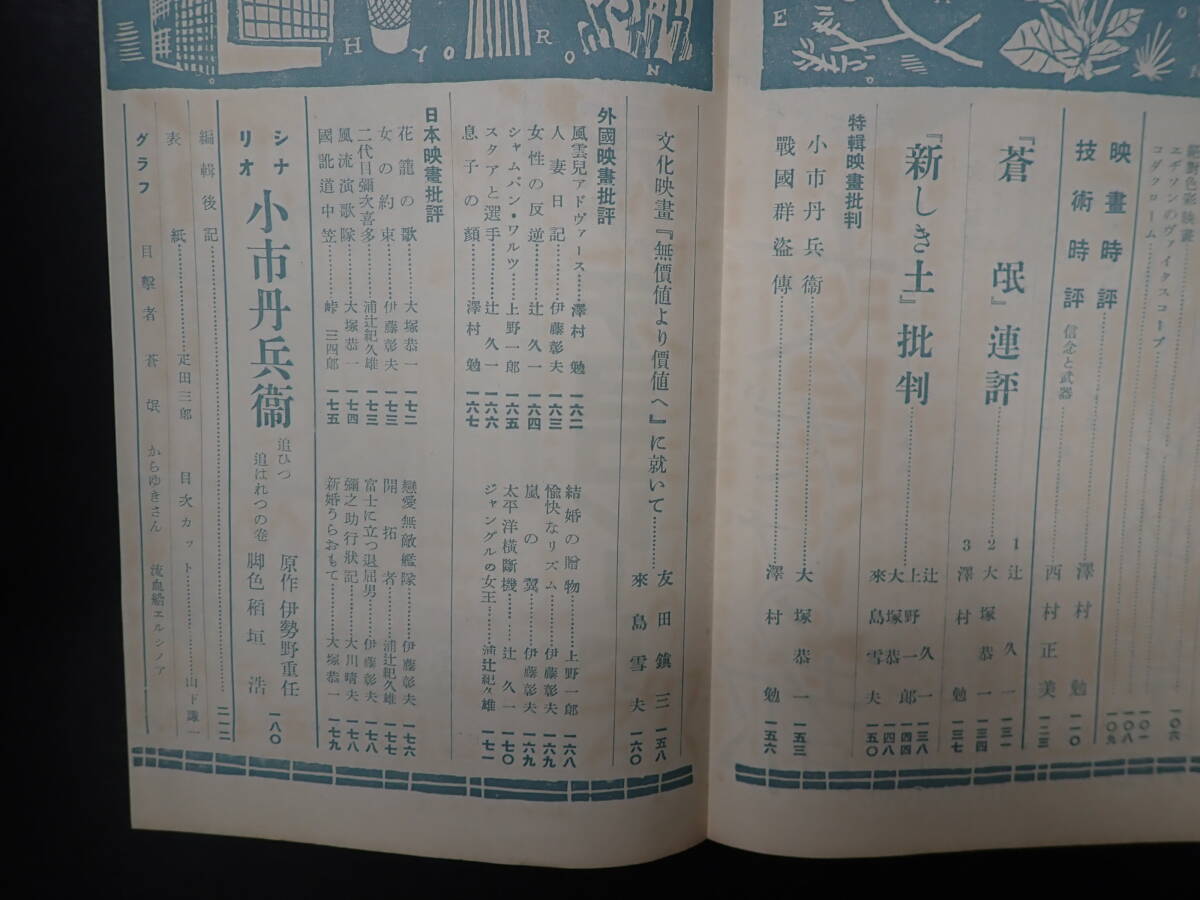 HYORON
エヂソンのヴァイタスコープ
コダクローム
一〇六
一〇一
一〇八
一〇九
映畫時評……澤村勉 一一〇
技術時評 信念と武器 西村正美 一二三
『蒼氓』連評
1 辻久一 一三一
2 大塚恭一 一三四
3 澤村勉 一三七
『新しき土』批判
辻久一 一三八
上野一郎 一四四
大塚恭一 一四八
來島雪夫 一五〇
特輯映畫批判
小市丹兵衞……大塚恭一 一五三
戰國群盜傳……澤村勉 一五六
文化映畫『無價値より價値へ』に就いて……
友田鎮三 一五八
來島雪夫 一六〇
外國映畫批評
風雲兒アドヴァース……澤村勉 一六二
人妻日記……伊藤彰夫 一六三
女性の反逆……辻久一 一六四
シャムパン・ワルツ……上野一郎 一六五
スタアと選手……辻久一 一六六
息子の顏……澤村勉 一六七
結婚の贈物……上野一郎 一六八
愉快なリズム……伊藤彰夫 一六九
嵐の翼……伊藤彰夫 一六九
太平洋横斷機……辻久一 一七〇
ジャングルの女王……浦辻紀久雄 一七一
日本映畫批評
花籠の歌……大塚恭一 一七二
女の約束……伊藤彰夫 一七三
二代目彌次喜多……浦辻紀久雄 一七三
風流演歌隊……大塚恭一 一七四
國訛道中笠……峠三四郎 一七五
戀愛無敵艦隊……伊藤彰夫 一七六
開拓者……浦辻紀久雄 一七七
富士に立つ退屈男……伊藤彰夫 一七八
彌之助行狀記……大川晴夫 一七八
新婚うらおもて……大塚恭一 一七九
シナリオ 小市丹兵衞 追ひつ追はれつの卷
原作 伊勢野重任
脚色 稻垣浩 一八〇
編輯後記……二一二
表紙……疋田三郎 目次カット……山下謙一
グラフ 目擊者 蒼氓 からゆきさん 流血船エルシノア